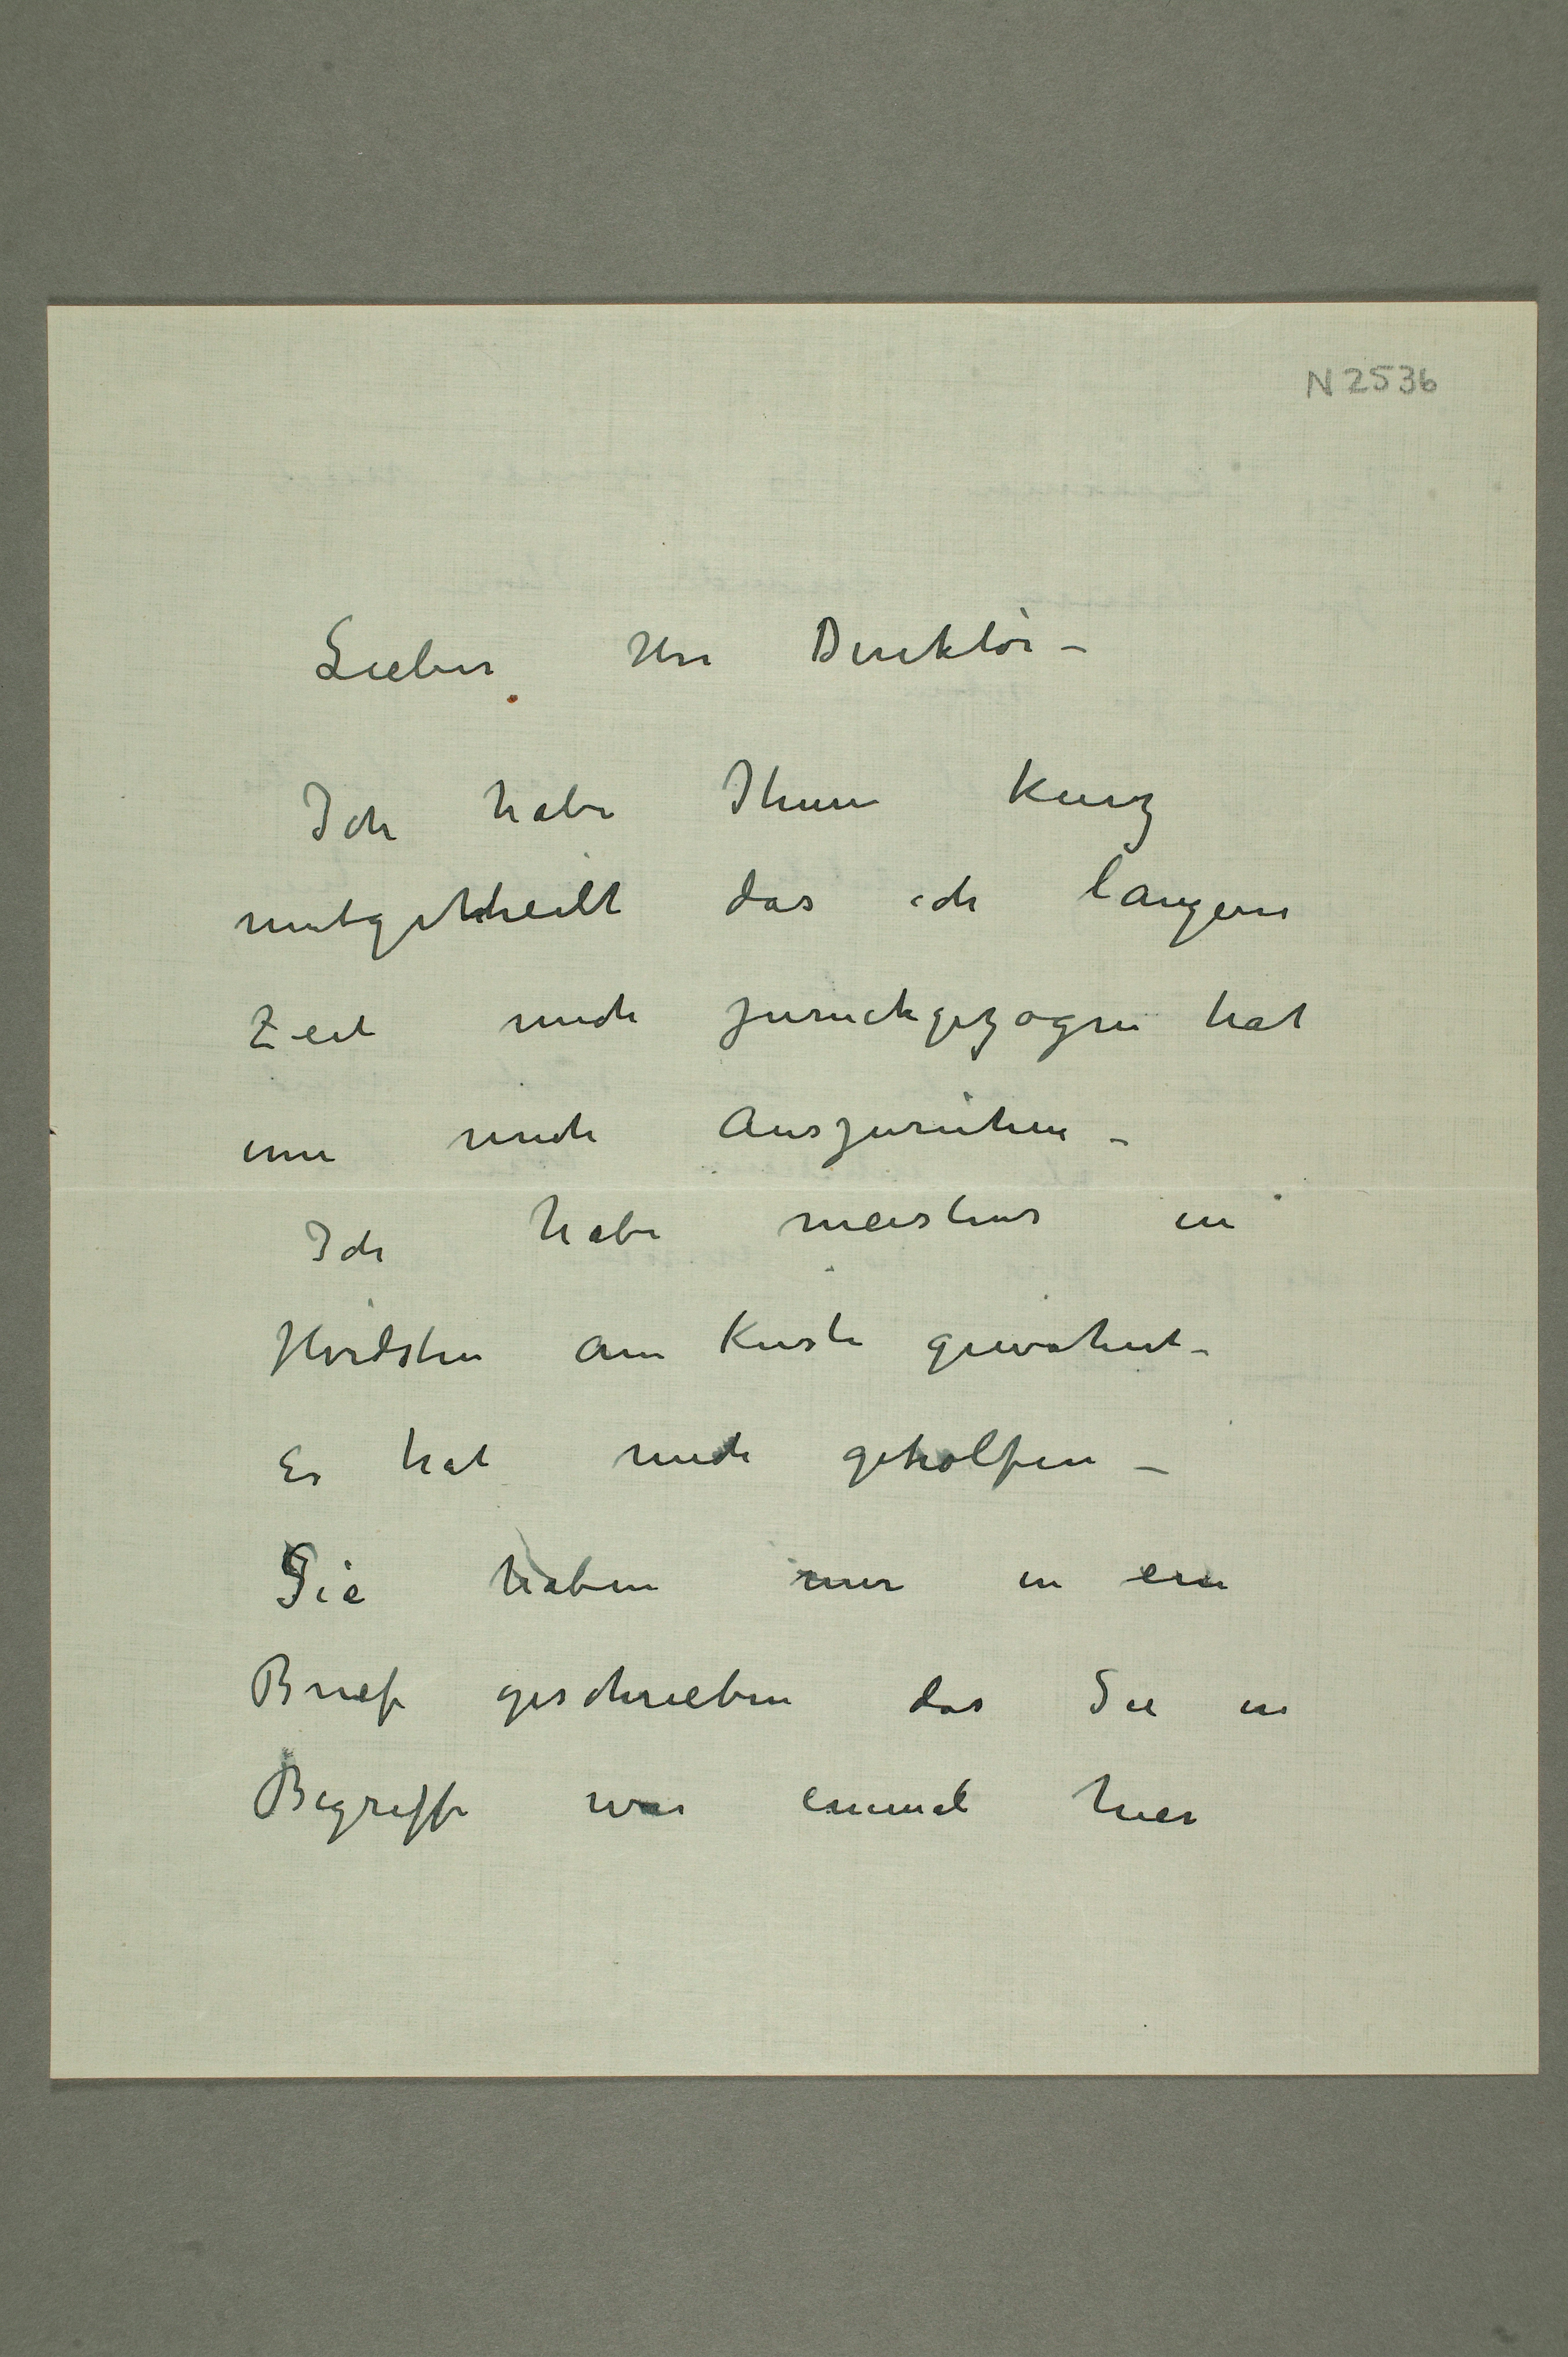 N 2536
Lieber Herr Direktör –
Ich habe Ihnen kurz
mitgetheilt das ich längere
Zeit mich zurückgezogen hat
um mich auszuruhen –
Ich habe meistens in
Hvidsten am Küste gewohnt –
Es hat mich geholfen –
Sie haben mir in ein
Brief geschrieben das Sie in
Begriffe war einmal hier